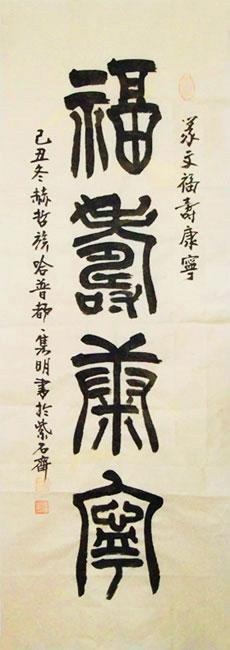 篆文福壽康寧
福壽康寧
己丑冬赫哲族哈普都·隽明書於紫石齋